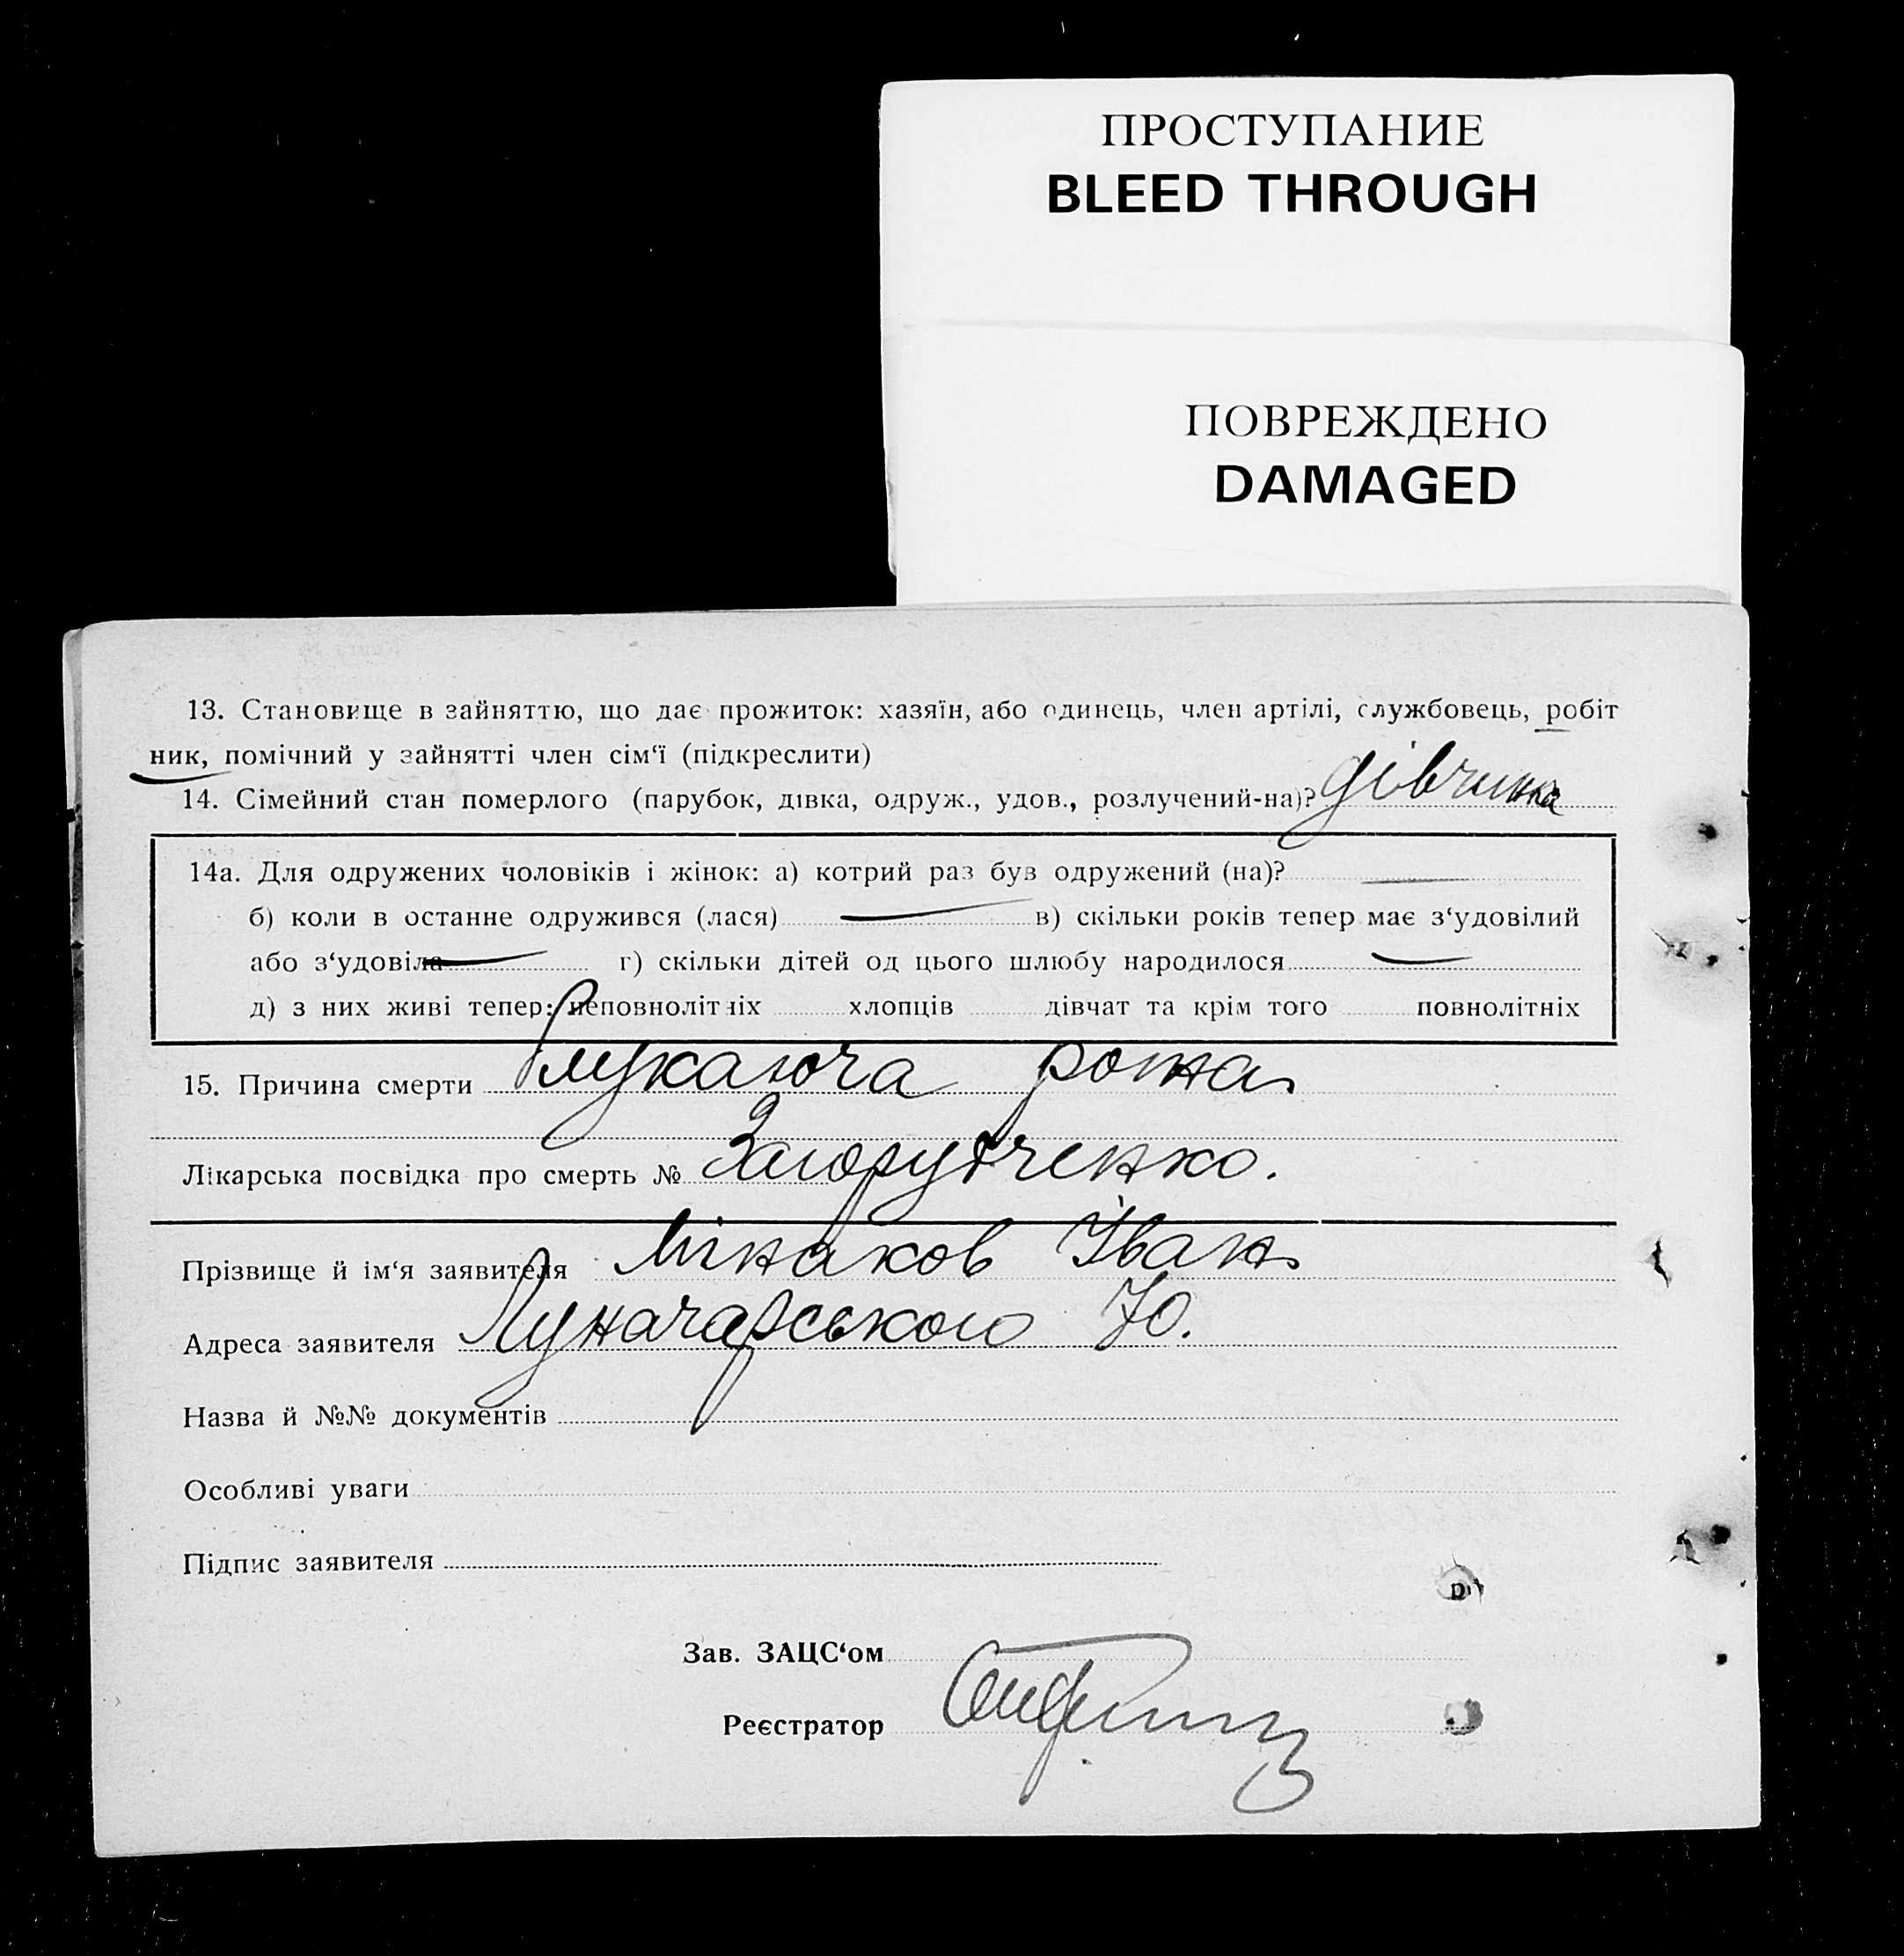 ПРОСТУПАНИЕ
BLEED THROUGH
ПОВРЕЖДЕНО
DAMAGED
13. Становище в зайняттю, що дає прожиток: хазяїн, або одинець, член артілі, службовець, робіт
ник, помічний у зайнятті член сім‘ї (підкреслити)
14. Сімейний стан померлого (парубок, дівка, одруж., удов., розлучений-на)? дівчинка
14а. Для одружених чоловіків і жінок: а) котрий раз був одружений (на)?
б) коли в останне одружився (лася) в) скільки років тепер має з‘удовілий
або з‘удовіла г) скільки дітей од цього шлюбу народилося
д) з них живі тепер: неповнолітніх хлопців дівчат та крім того повнолітніх
15. Причина смерти рожа
Лікарська посвідка про смерть №
Прізвище й ім‘я заявителя Мінаков Іван
Адреса заявителя Луначарського 70.
Назва й №№ документів
Особливі уваги
Підпис заявителя
Зав. ЗАЦС‘ом
Реєстратор